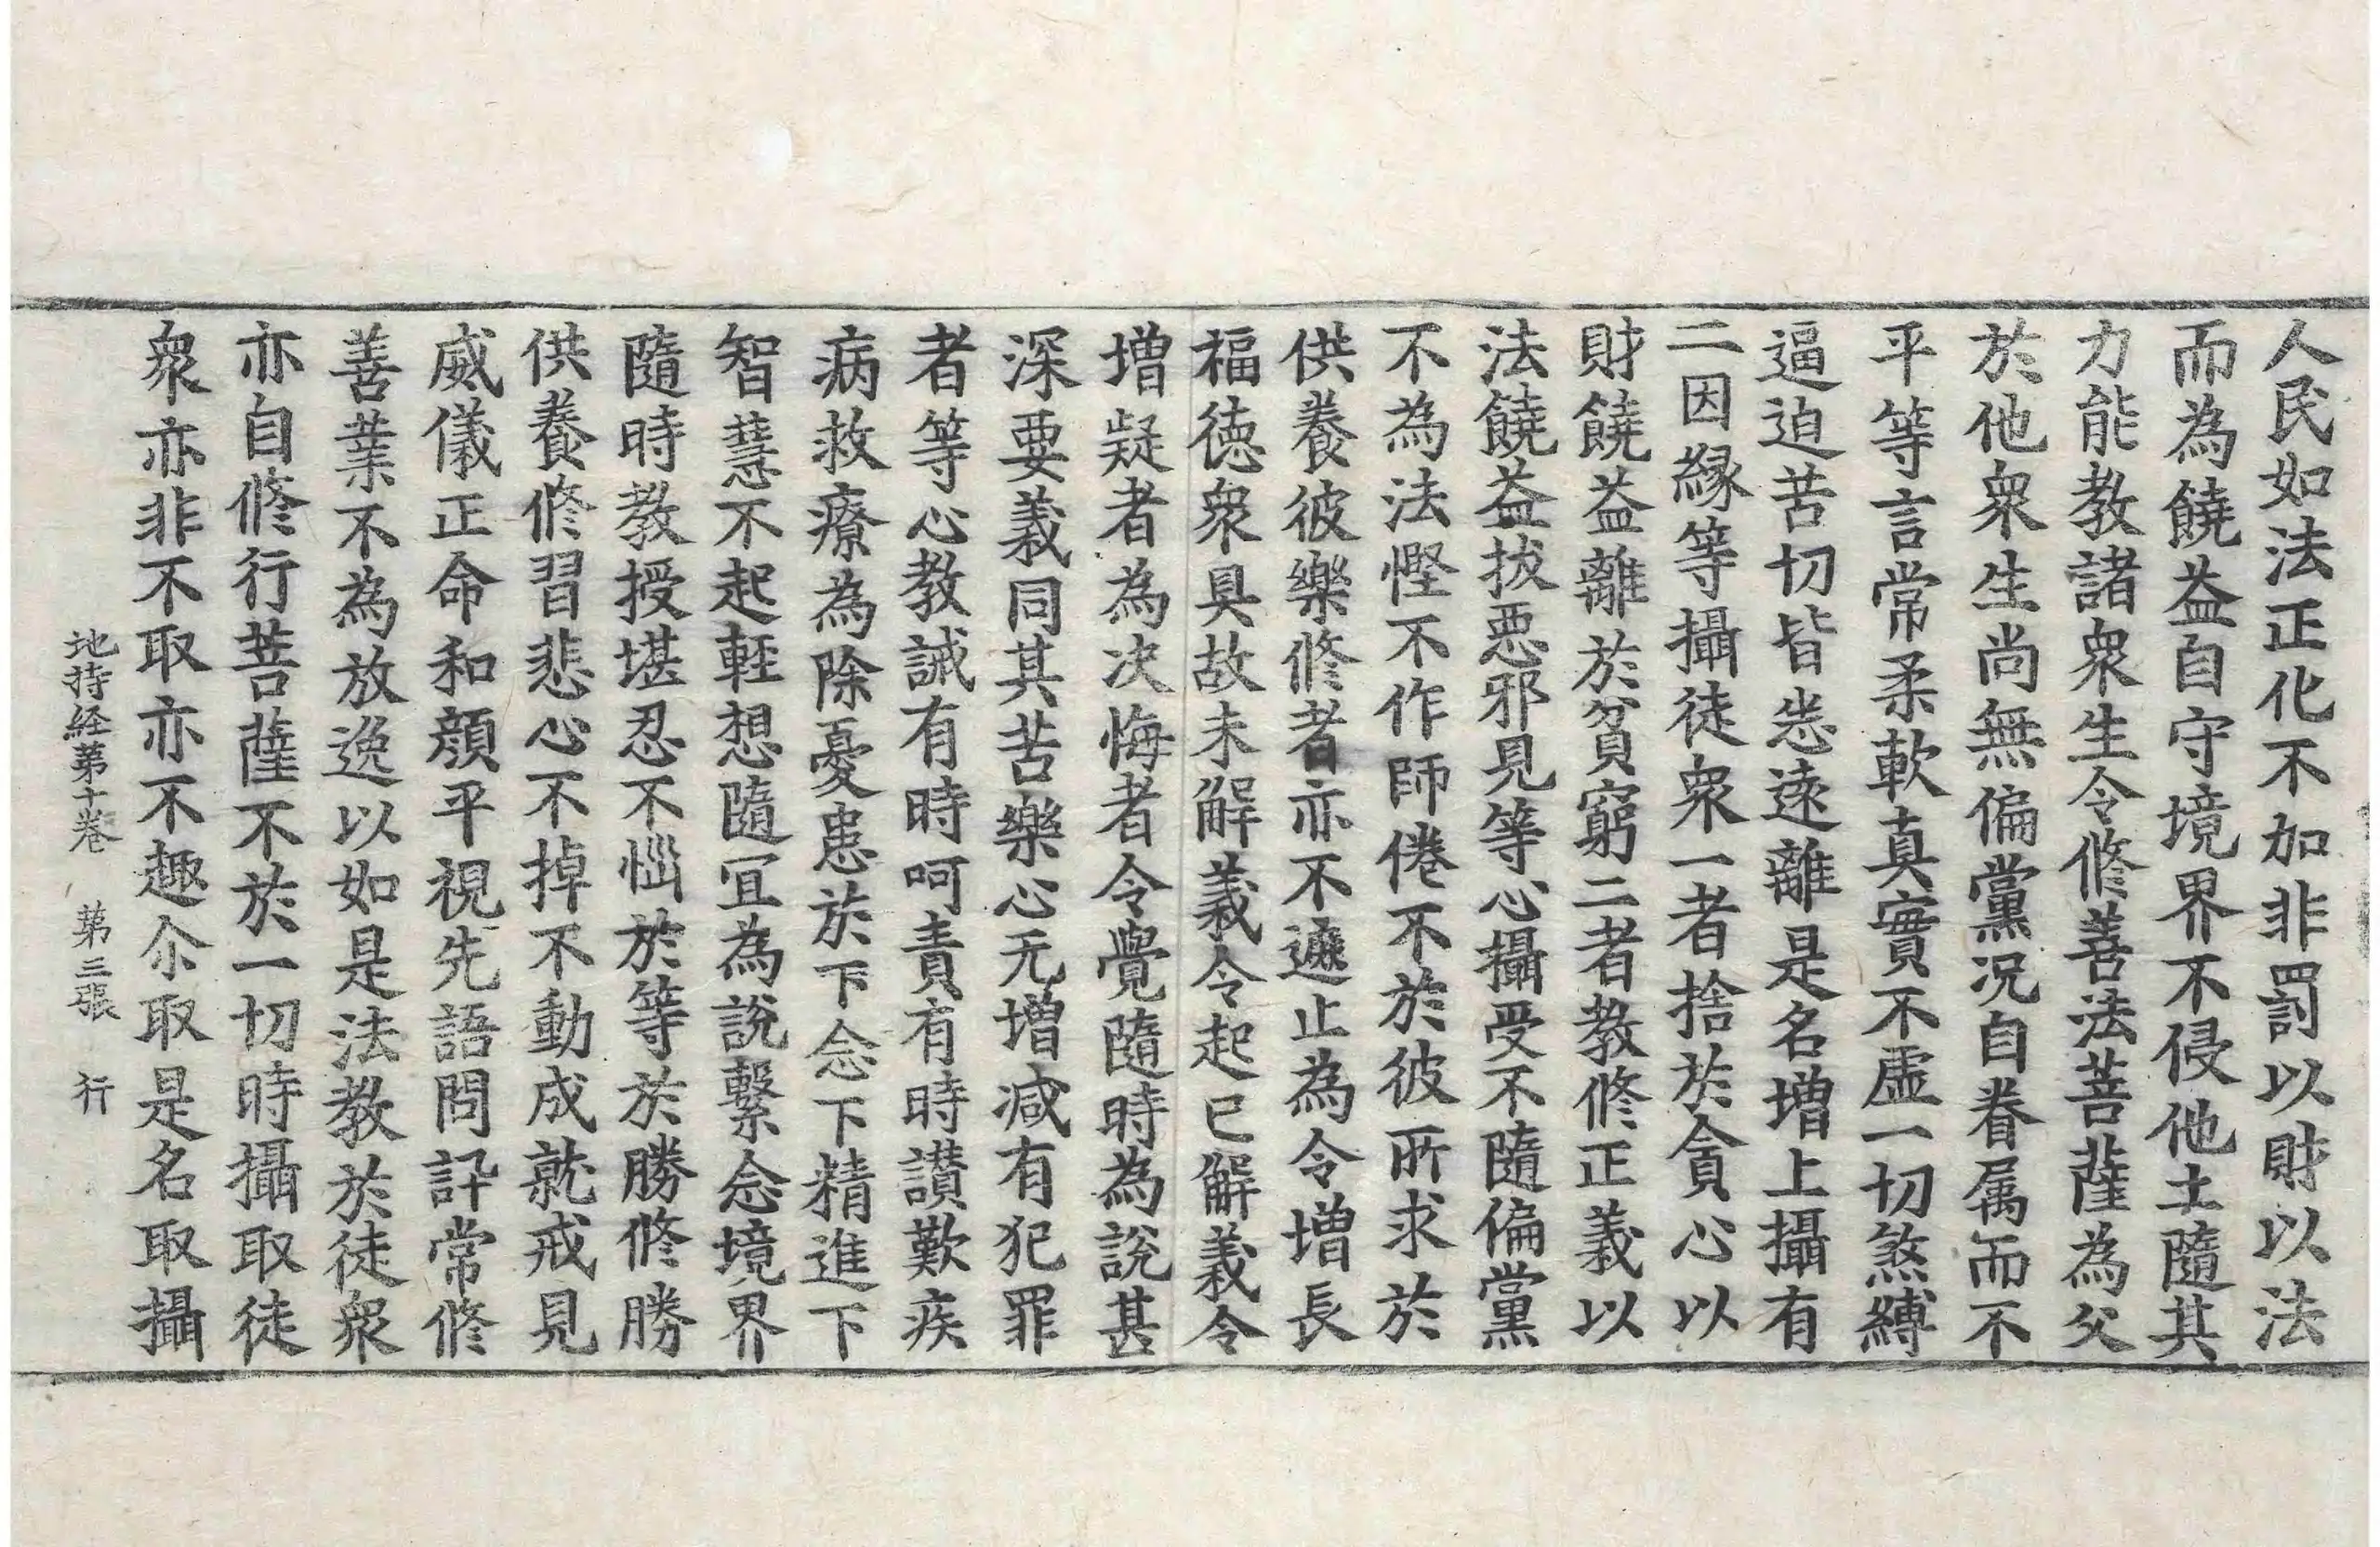 人民如法正化不加非罰以財以法
而為饒益自守境界不侵他土隨其
力能教諸衆生令修善法菩薩為父
於他衆生尚無偏黨況自眷属而不
平等言常柔軟真實不虛一切煞縛
逼迫苦切皆悉遠離是名增上攝有
二因緣等攝徒衆一者捨於貪心以
財饒益離於貧窮二者教修正義以
法饒益拔惡邪見等心攝受不隨偏黨
不為法慳不作師倦不於彼所求於
供養彼樂修者亦不遮止為令增長
福德衆具故未解義令起已解義令
增疑者為決悔者令覺隨時為說甚
深要義同其苦樂心无增減有犯罪
者等心教誡有時呵責有時讃歎疾
病救療為除憂患於下念下精進下
智慧不起輕想隨冝為說繫念境界
隨時教授堪忍不惱於等於勝修勝
供養修習悲心不掉不動成就戒見
威儀正命和顏平視先語問訊常修
善業不為放逸以如是法教於徒衆
亦自修行菩薩不於一切時攝取徒
衆亦非不取亦不趣尒取是名取攝
地持経第十卷 第三張 行